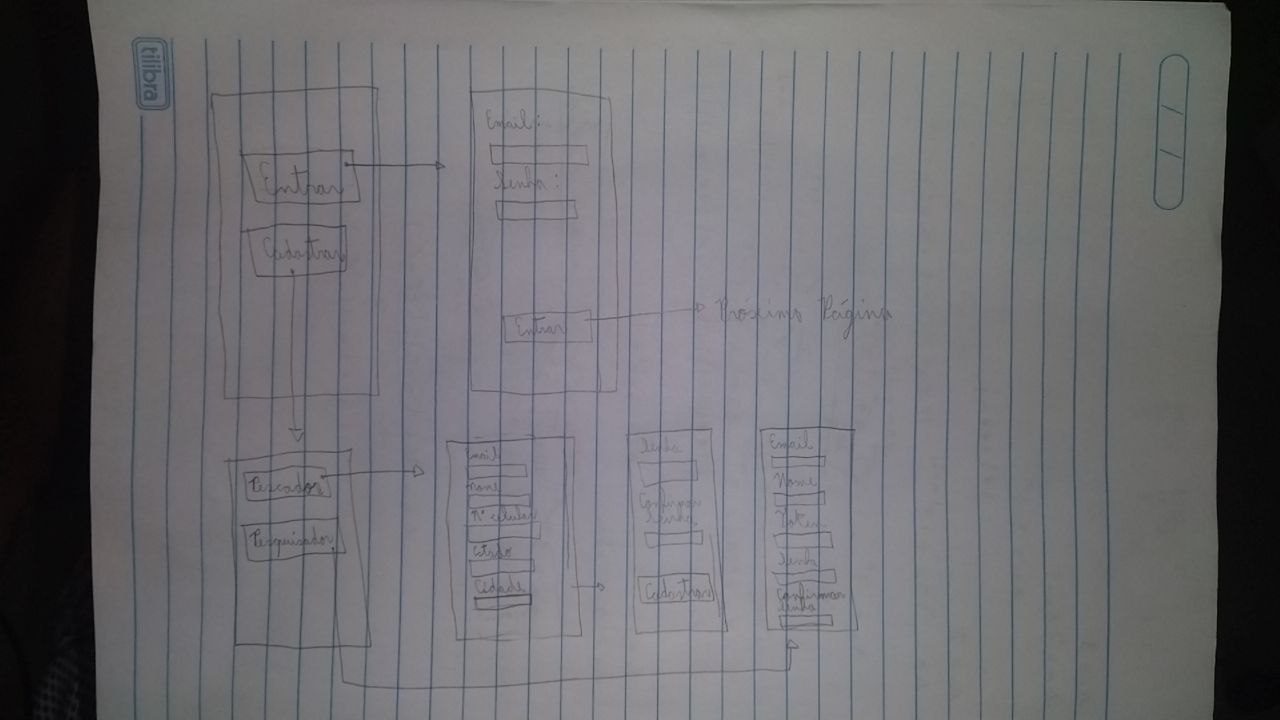 tilibra
Entrar
Cadastrar
Email:
Senha:
Entrar
Próxima Página
Pescador
Pesquisador
Email
Nome
N° celular
Estado
Cidade
Senha
Confirmar
Senha
Cadastrar
Email
Nome
Token
Senha
Confirmar
Senha